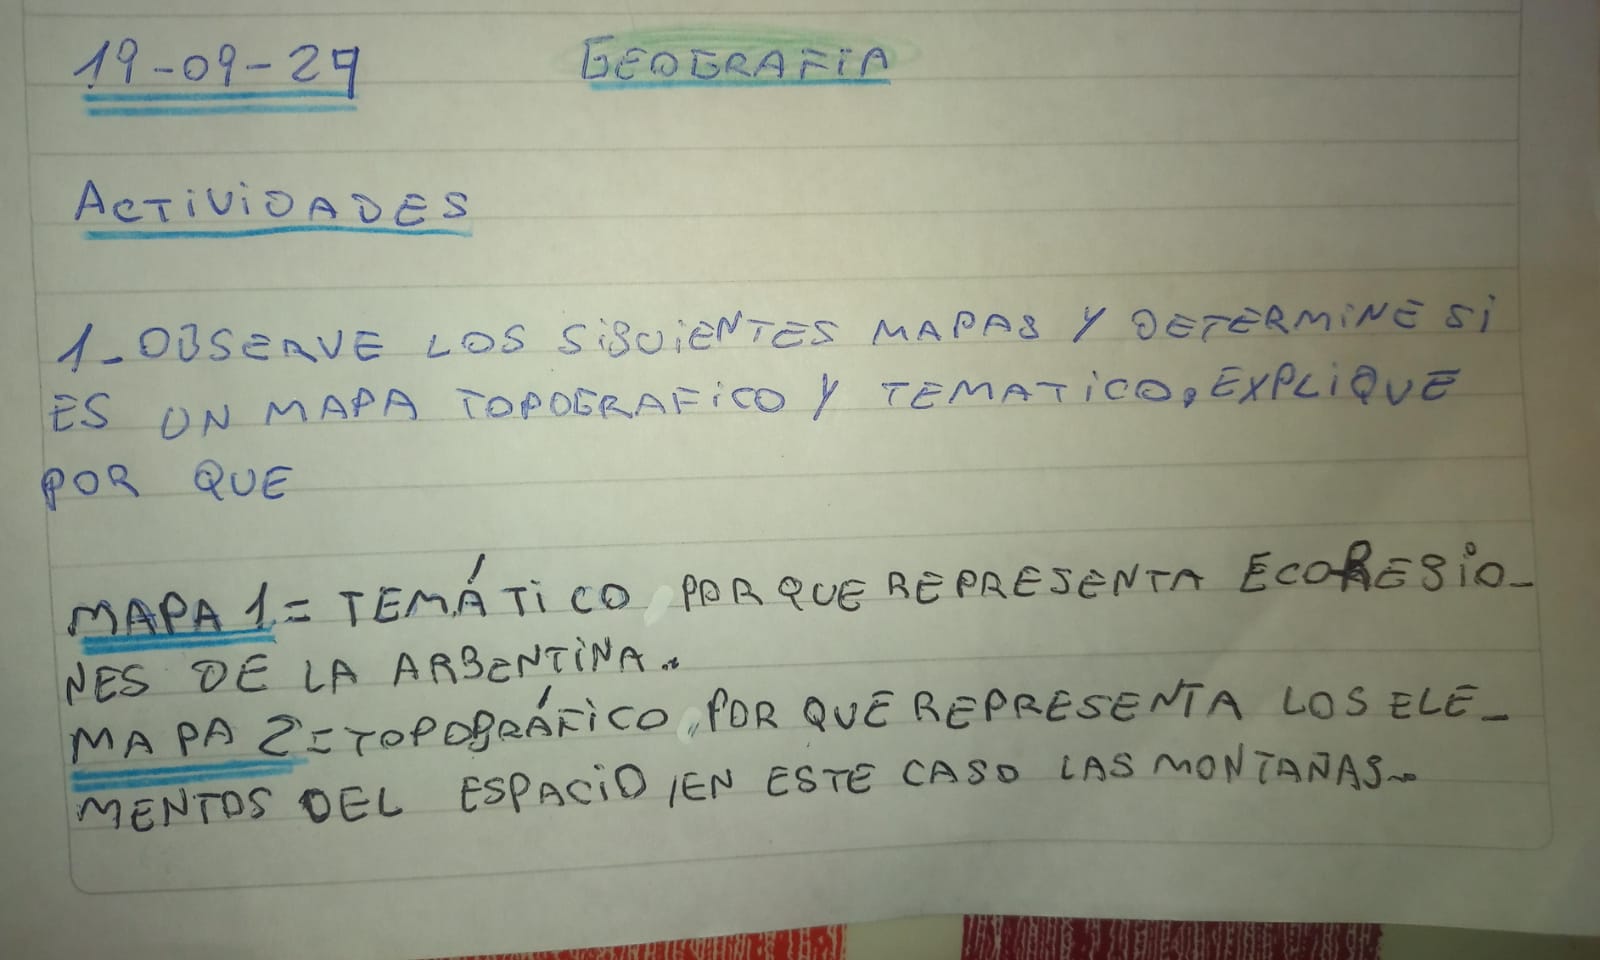 19-09-24 GEOGRAFIA
ACTIVIDADES
1-OBSERVE LOS SIGUIENTES MAPAS Y DETERMINE SI
ES UN MAPA TOPOGRAFICO Y TEMATICO, EXPLIQUE
POR QUE
MAPA 1= TEMÁTICO, POR QUE REPRESENTA ECOREGIO-
NES DE LA ARGENTINA.
MAPA 2=TOPOGRÁFICO, POR QUE REPRESENTA LOS ELE-
MENTOS DEL ESPACIO, EN ESTE CASO LAS MONTAÑAS.